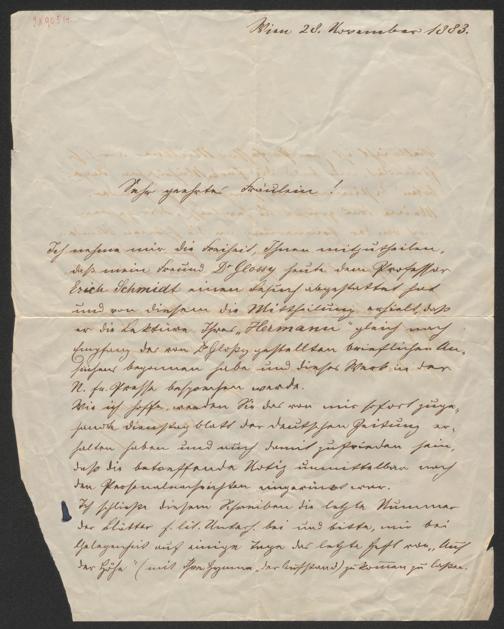 Wien 28. November 1883.
Sehr geehrtes Fräulein!
Ich nehme mir die Freiheit, Ihnen mitzutheilen,
daß mein Freund Dr Glossy heute dem Professor
Erich Schmidt einen Besuch abgestattet hat
und von diesem die Mittheilung erhielt, daß
er die Lektüre Ihres „Hermann" gleich nach
Empfang des von Dr Glossy gestellten brieflichen An-
suchens begonnen habe und dieses Werk in der
N. fr. Presse besprechen werde.
Wie ich hoffe, werden Sie das von mir sofort zuge-
sandte Dienstag blatt der deutschen Zeitung er-
halten haben und auch damit zufrieden sein,
daß die betreffende Notiz unmittelbar nach
den Personalnachrichten eingereiht war.
Ich schließe diesem Schreiben die letzte Nummer
der Blätter f. lit. Unterh. bei und bitte, mir bei
Gelegenheit auf einige Tage das letzte Heft von „Auf
der Höhe" (mit Ihrer Hymne „der Aufstand) zukommen zu lassen.